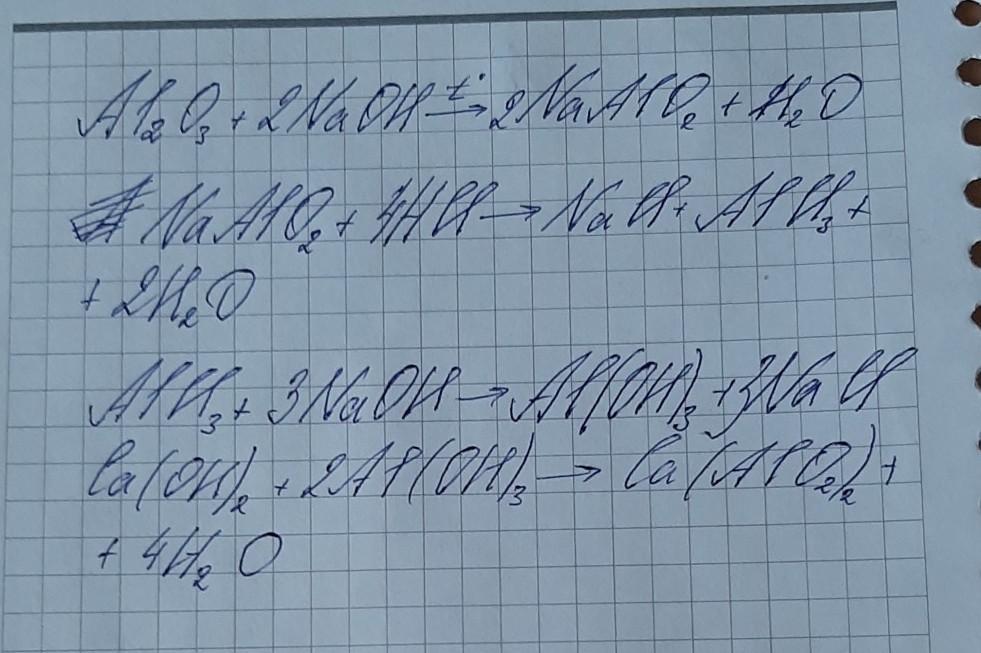 Al₂O₃ + 2NaOH t°→ 2NaAlO₂ + H₂O
NaAlO₂ + 4HCl → NaCl + AlCl₃ +
+ 2H₂O
AlCl₃ + 3NaOH → Al(OH)₃ + 3NaCl
Ca(OH)₂ + 2Al(OH)₃ → Ca(AlO₂)₂ +
+ 4H₂O